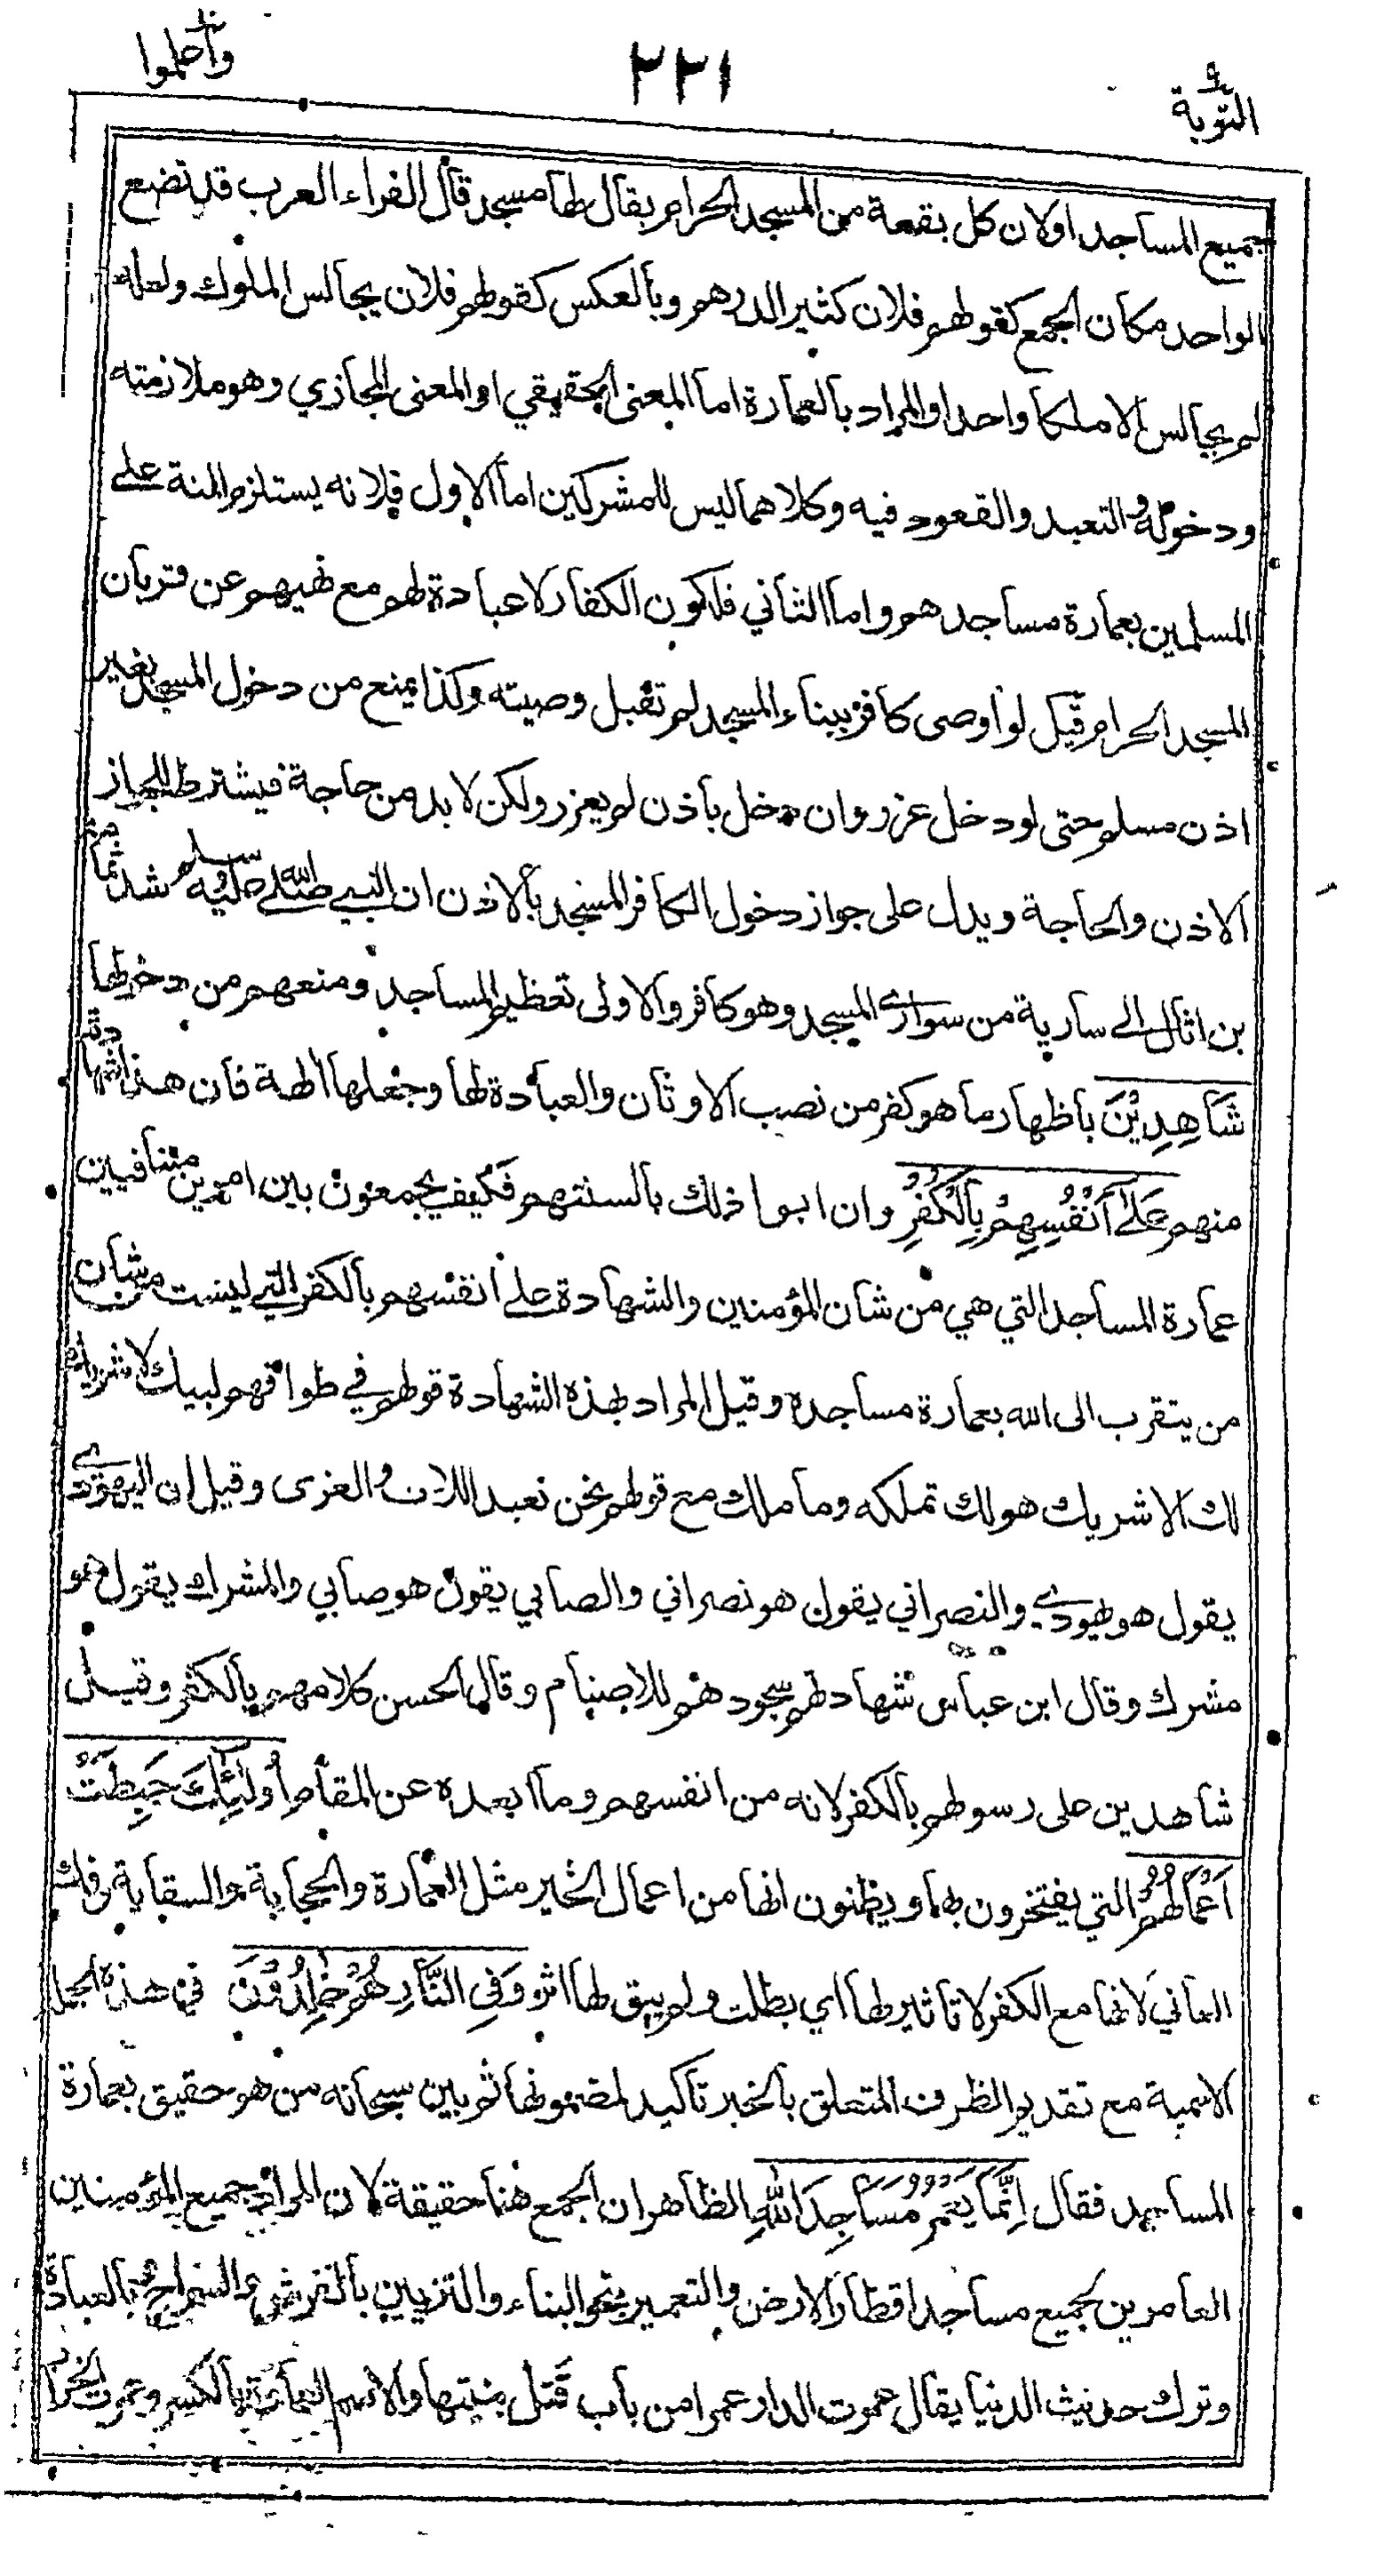 التوبة ٩
٢٢١
واعلموا ١٠
جميع المساجد او لان كل بقعة من المسجد الحرام يقال لها مسجد قال الفراء العرب قد تضع
الواحد مكان الجمع كقولهم فلان كثير الدرهم وبالعكس كقولهم فلان يجالس الملوك ولعله
لم يجالس الا ملكا واحدا والمراد بالعمارة اما المعنى الحقيقي او المعنى المجازي وهو ملازمته
ودخوله والتعبد والقعود فيه وكلاهما ليس للمشركين اما الاول فلانه يستلزم المنة على
المسلمين بعمارة مساجدهم واما الثاني فلكون الكفار لا عبادة لهم مع نهيهم عن قربان
المسجد الحرام قيل لو اوصى كافر ببناء المسجد لم تقبل وصيته وكذا يمنع من دخول المسجد بغير
اذن مسلم حتى لو دخل عزر وان دخل باذن لم يعزر ولكن لا بد من حاجة فيشترط للجواز
الاذن والحاجة ويدل على جواز دخول الكافر المسجد بالاذن ان النبي صلى الله عليه وسلم شد ثمامة
بن اثال الى سارية من سواري المسجد وهو كافر والاولى تعظيم المساجد ومنعهم من دخولها
شَاهِدِيْنَ باظهار ما هو كفر من نصب الاوثان والعبادة لها وجعلها الهة فان هذا شهادة
منهم عَلٰٓى اَنْفُسِهِمْ بِالْكُفْرِ وان ابوا ذلك بالسنتهم فكيف يجمعون بين امرين متنافيين
عمارة المساجد التي هي من شان المؤمنين والشهادة على انفسهم بالكفر التي ليست من شان
من يتقرب الى الله بعمارة مساجده وقيل المراد بهذه الشهادة قولهم في طوافهم لبيك لا شريك
لك الا شريك هو لك تملكه وما ملك مع قولهم نحن نعبد اللات والعزى وقيل ان اليهودي
يقول هو يهودي والنصراني يقول هو نصراني والصابي يقول هو صابي والمشرك يقول هو
مشرك وقال ابن عباس شهادتهم سجودهم للاصنام وقال الحسن كلامهم بالكفر وقيل
شاهدين على رسولهم بالكفر لانه من انفسهم وما ابعده عن المقام اُولٰٓئِكَ حَبِطَتْ
اَعْمَالُهُمْ التي يفتخرون بها ويظنون انها من اعمال الخير مثل العمارة والحجابة والسقاية وفك
العاني لانها مع الكفر لا تاثير لها اي بطلت ولم يبق لها اثر وَفِي النَّارِ هُمْ خٰلِدُوْنَ في هذه الجملة
الاسمية مع تقديم الظرف المتعلق بالخبر تاكيد لمضمونها ثم بين سبحانه من هو حقيق بعمارة
المساجد فقال اِنَّمَا يَعْمُرُ مَسَاجِدَ اللّٰهِ الظاهر ان الجمع هنا حقيقة لان المراد جميع المؤمنين
العامرين لجميع مساجد اقطار الارض والتعمير نحو البناء والتزيين بالفرش والسراج وبالعبادة
وترك حديث الدنيا يقال عمرت الدار عمرا من باب قتل بنيتها والاسم العمارة بالكسر وعمرت الخراب